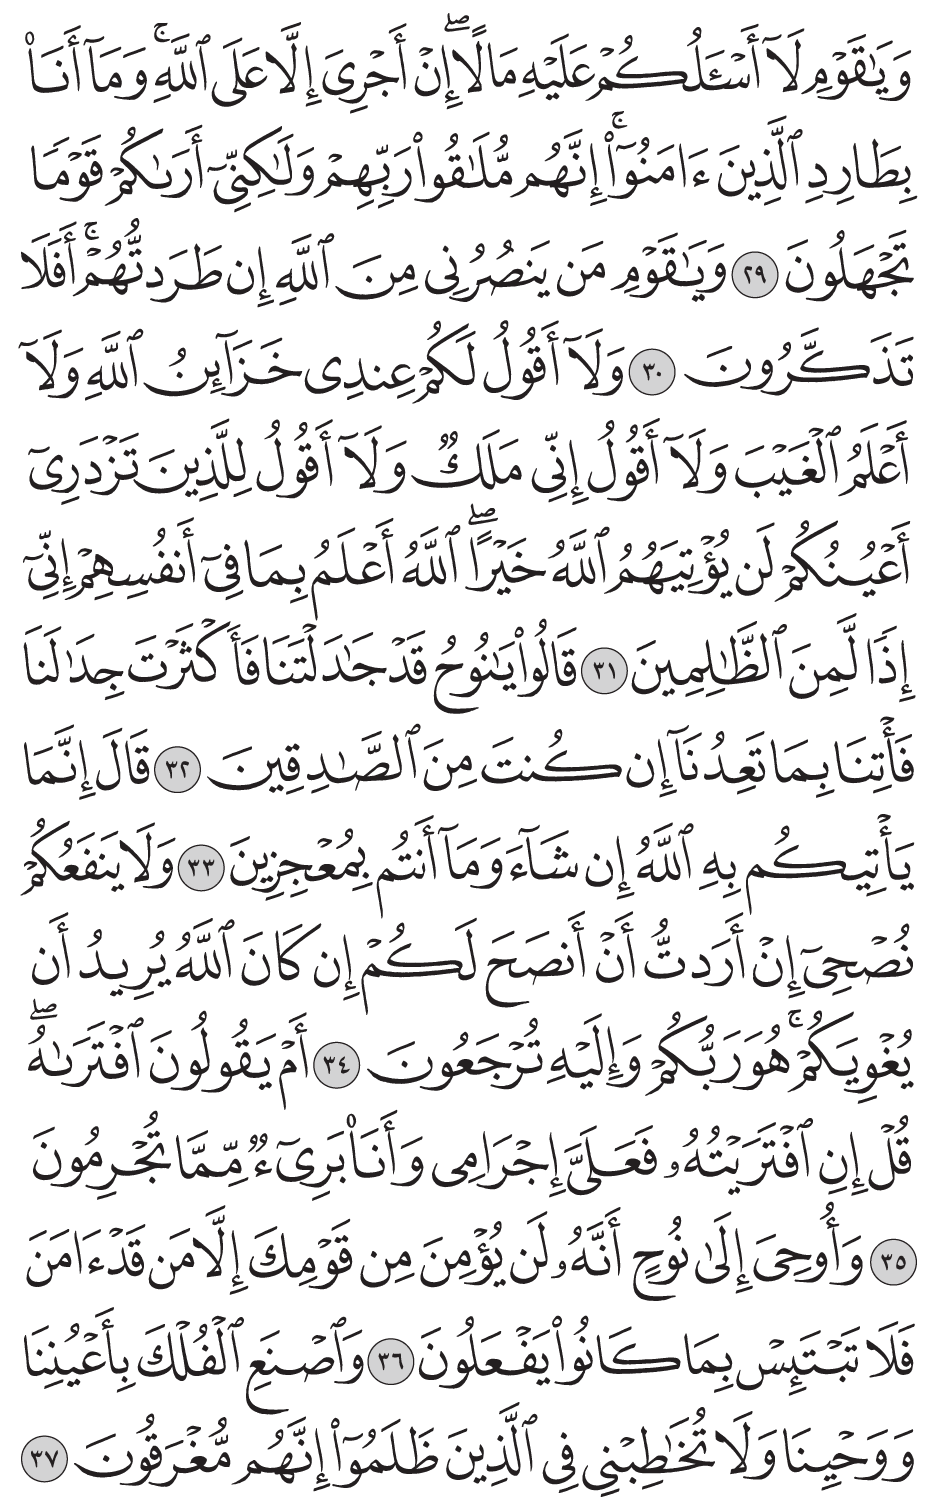 وَيَٰقَوْمِ لَآ أَسْـَٔلُكُمْ عَلَيْهِ مَالًا ۖ إِنْ أَجْرِىَ إِلَّا عَلَى ٱللَّهِ ۚ وَمَآ أَنَا۠
بِطَارِدِ ٱلَّذِينَ ءَامَنُوٓا۟ ۚ إِنَّهُم مُّلَٰقُوا۟ رَبِّهِمْ وَلَٰكِنِّىٓ أَرَىٰكُمْ قَوْمًا
تَجْهَلُونَ ٢٩ وَيَٰقَوْمِ مَن يَنصُرُنِى مِنَ ٱللَّهِ إِن طَرَدتُّهُمْ ۚ أَفَلَا
تَذَكَّرُونَ ٣٠ وَلَآ أَقُولُ لَكُمْ عِندِى خَزَآئِنُ ٱللَّهِ وَلَآ
أَعْلَمُ ٱلْغَيْبَ وَلَآ أَقُولُ إِنِّى مَلَكٌ وَلَآ أَقُولُ لِلَّذِينَ تَزْدَرِىٓ
أَعْيُنُكُمْ لَن يُؤْتِيَهُمُ ٱللَّهُ خَيْرًا ۖ ٱللَّهُ أَعْلَمُ بِمَا فِىٓ أَنفُسِهِمْ إِنِّىٓ
إِذًا لَّمِنَ ٱلظَّٰلِمِينَ ٣١ قَالُوا۟ يَٰنُوحُ قَدْ جَٰدَلْتَنَا فَأَكْثَرْتَ جِدَٰلَنَا
فَأْتِنَا بِمَا تَعِدُنَآ إِن كُنتَ مِنَ ٱلصَّٰدِقِينَ ٣٢ قَالَ إِنَّمَا
يَأْتِيكُم بِهِ ٱللَّهُ إِن شَآءَ وَمَآ أَنتُم بِمُعْجِزِينَ ٣٣ وَلَا يَنفَعُكُمْ
نُصْحِىٓ إِنْ أَرَدتُّ أَنْ أَنصَحَ لَكُمْ إِن كَانَ ٱللَّهُ يُرِيدُ أَن
يُغْوِيَكُمْ ۚ هُوَ رَبُّكُمْ وَإِلَيْهِ تُرْجَعُونَ ٣٤ أَمْ يَقُولُونَ ٱفْتَرَىٰهُ ۖ
قُلْ إِنِ ٱفْتَرَيْتُهُۥ فَعَلَىَّ إِجْرَامِى وَأَنَا۠ بَرِىٓءٌ مِّمَّا تُجْرِمُونَ
٣٥ وَأُوحِىَ إِلَىٰ نُوحٍ أَنَّهُۥ لَن يُؤْمِنَ مِن قَوْمِكَ إِلَّا مَن قَدْ ءَامَنَ
فَلَا تَبْتَئِسْ بِمَا كَانُوا۟ يَفْعَلُونَ ٣٦ وَٱصْنَعِ ٱلْفُلْكَ بِأَعْيُنِنَا
وَوَحْيِنَا وَلَا تُخَٰطِبْنِى فِى ٱلَّذِينَ ظَلَمُوٓا۟ إِنَّهُم مُّغْرَقُونَ ٣٧